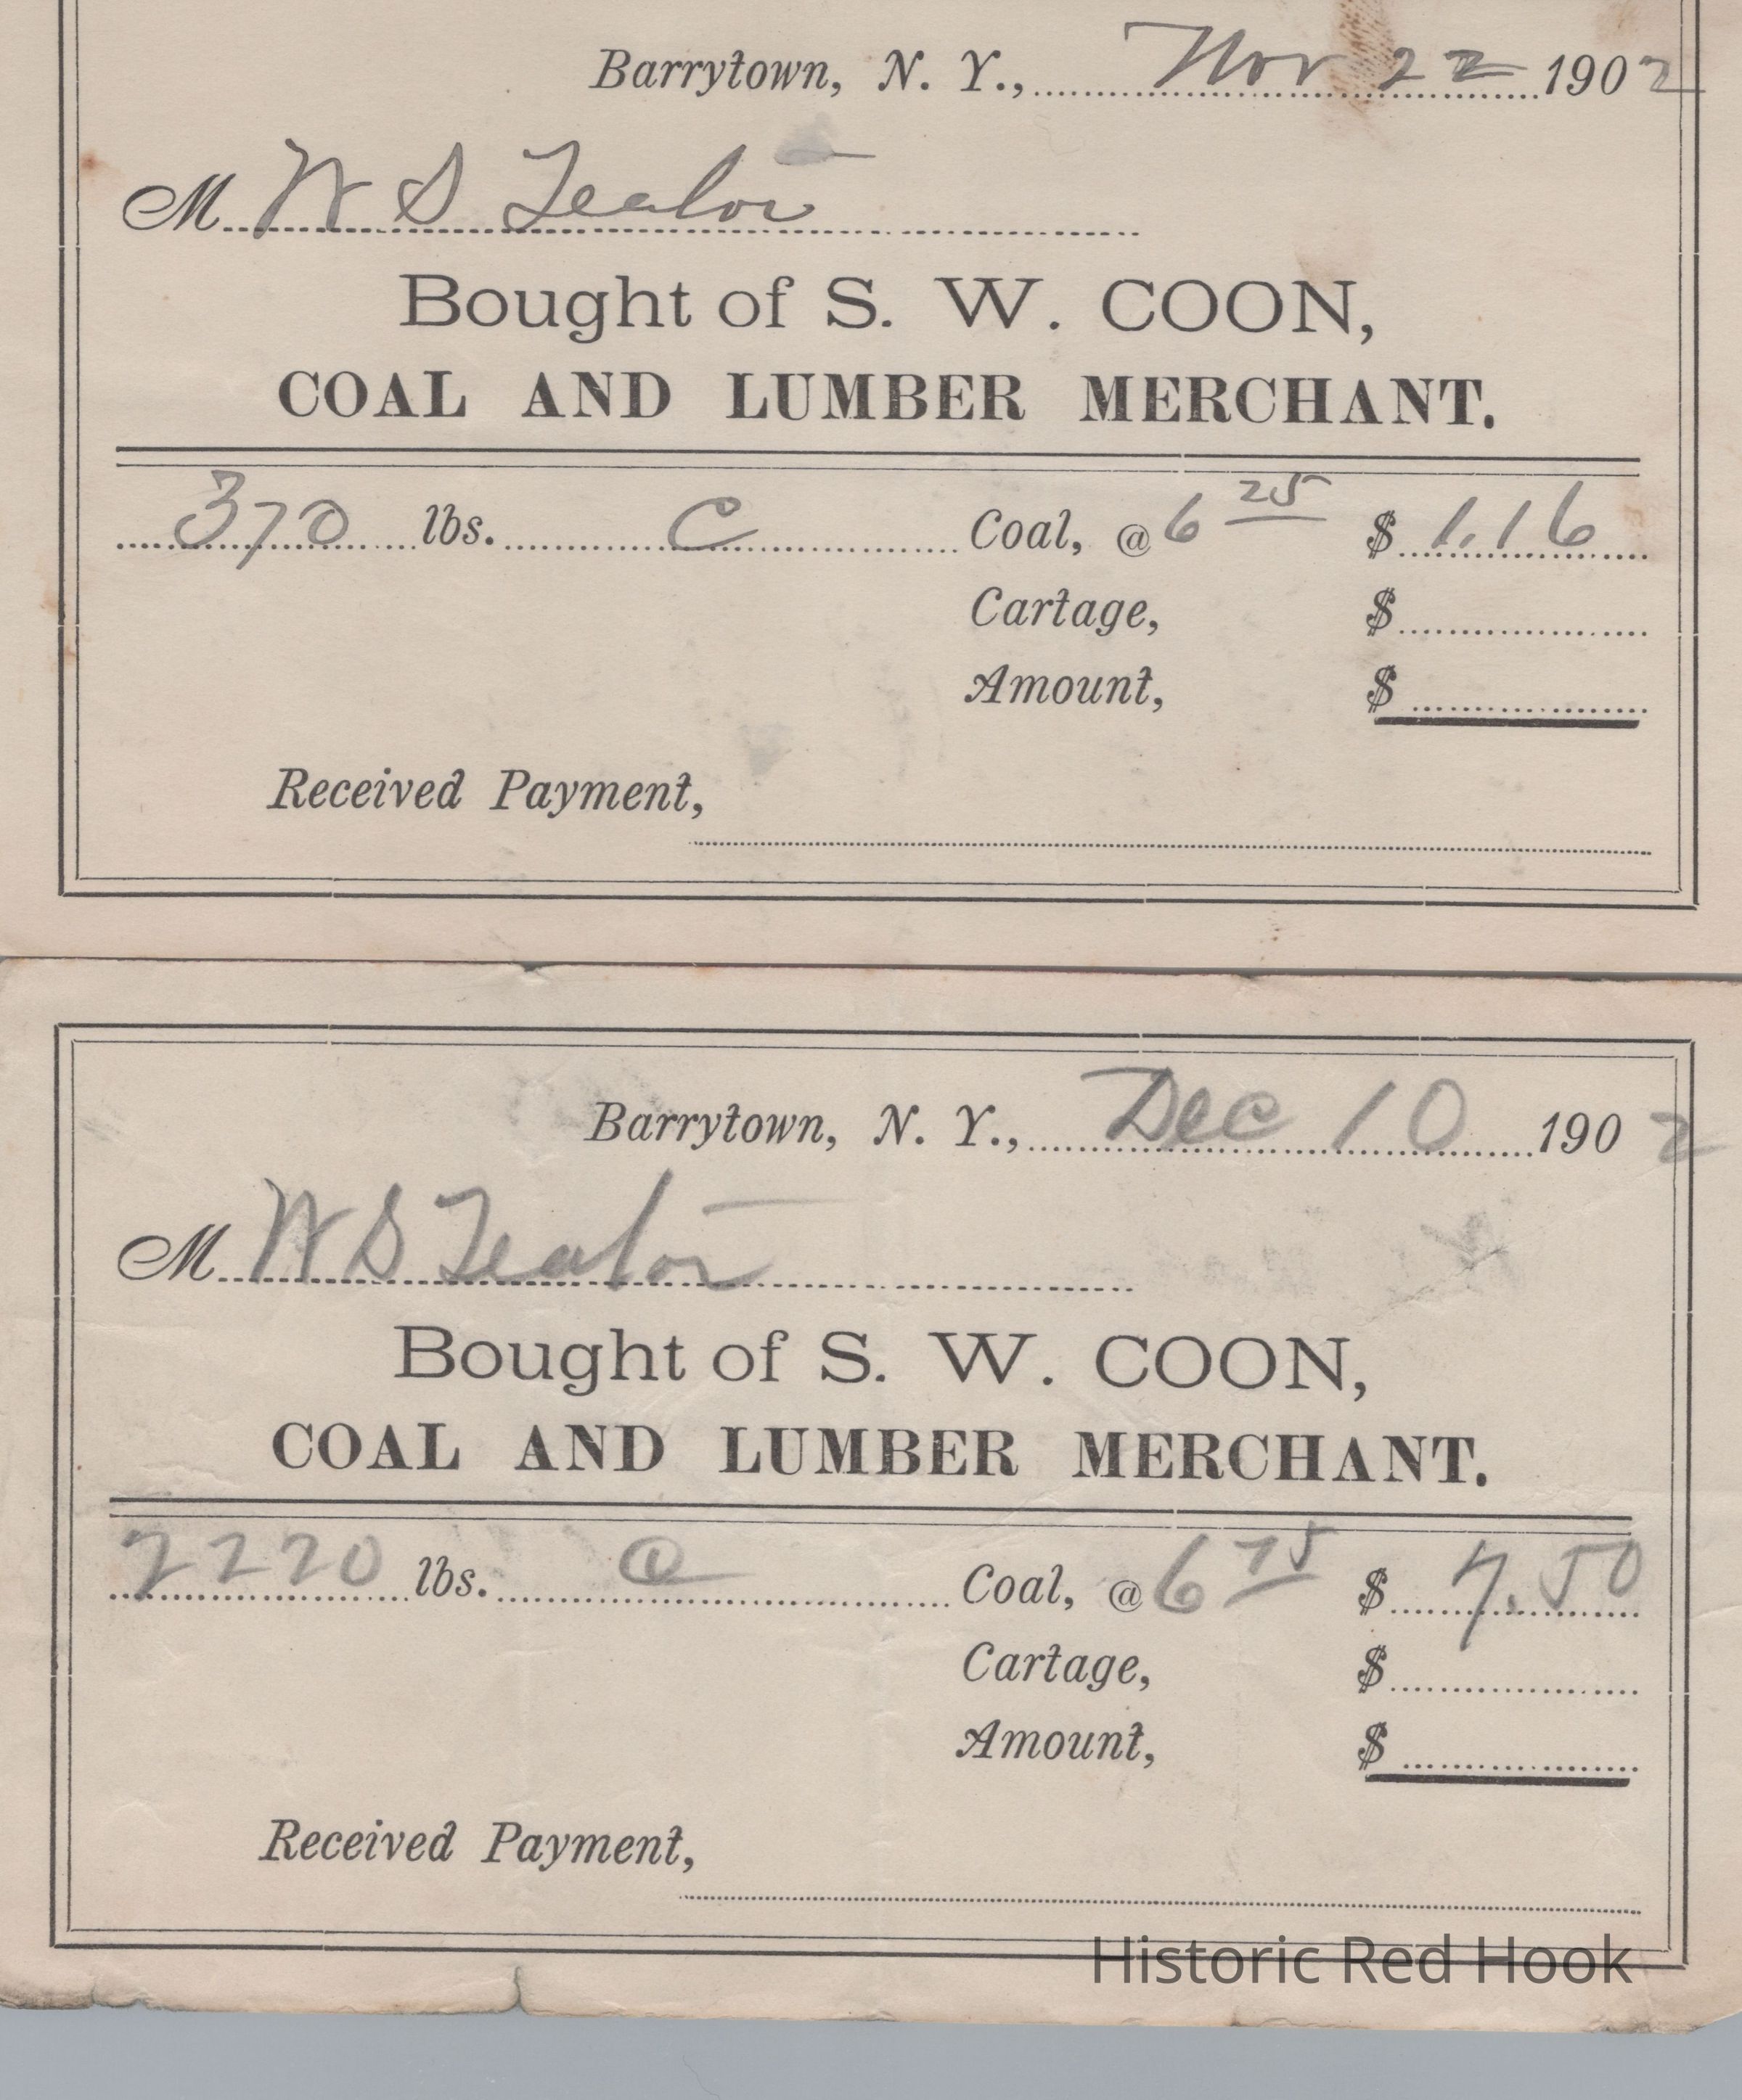 Barrytown, N. Y., Nov 22 1902
M W S Teator
Bought of S. W. COON,
COAL AND LUMBER MERCHANT.
370 lbs. C Coal, @ 6 25 $ 1.16
Cartage, $
Amount, $
Received Payment,
Barrytown, N. Y., Dec 10 1902
M W S Teator
Bought of S. W. COON,
COAL AND LUMBER MERCHANT.
2220 lbs. Coal, @ 6 75 $ 7.50
Cartage, $
Amount, $
Received Payment,
Historic Red Hook